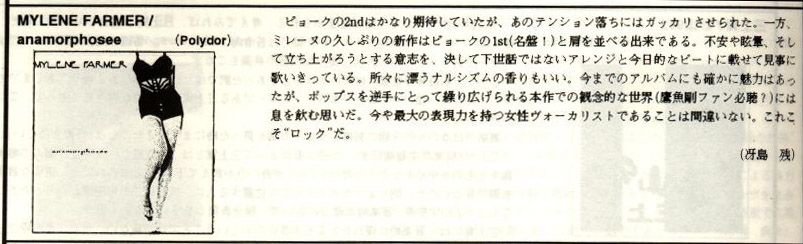 MYLENE FARMER /
anamorphosee (Polydor)
MYLENE FARMER
anamorphosee
ビョークの2ndはかなり期待していたが、あのテンション落ちにはガッカリさせられた。一方、
ミレーヌの久しぶりの新作はビョークの1st(名盤！)と肩を並べる出来である。不安や眩暈、そし
て立ち上がろうとする意志を、決して下世話ではないアレンジと今日的なビートに載せて見事に
歌いきっている。所々に漂うナルシズムの香りもいい。今までのアルバムにも確かに魅力はあっ
たが、ポップスを逆手にとって繰り広げられる本作での観念的な世界(鷹魚剛ファン必聴？)には
息を飲む思いだ。今や最大の表現力を持つ女性ヴォーカリストであることは間違いない。これこ
そ“ロック”だ。
(冴島　残)